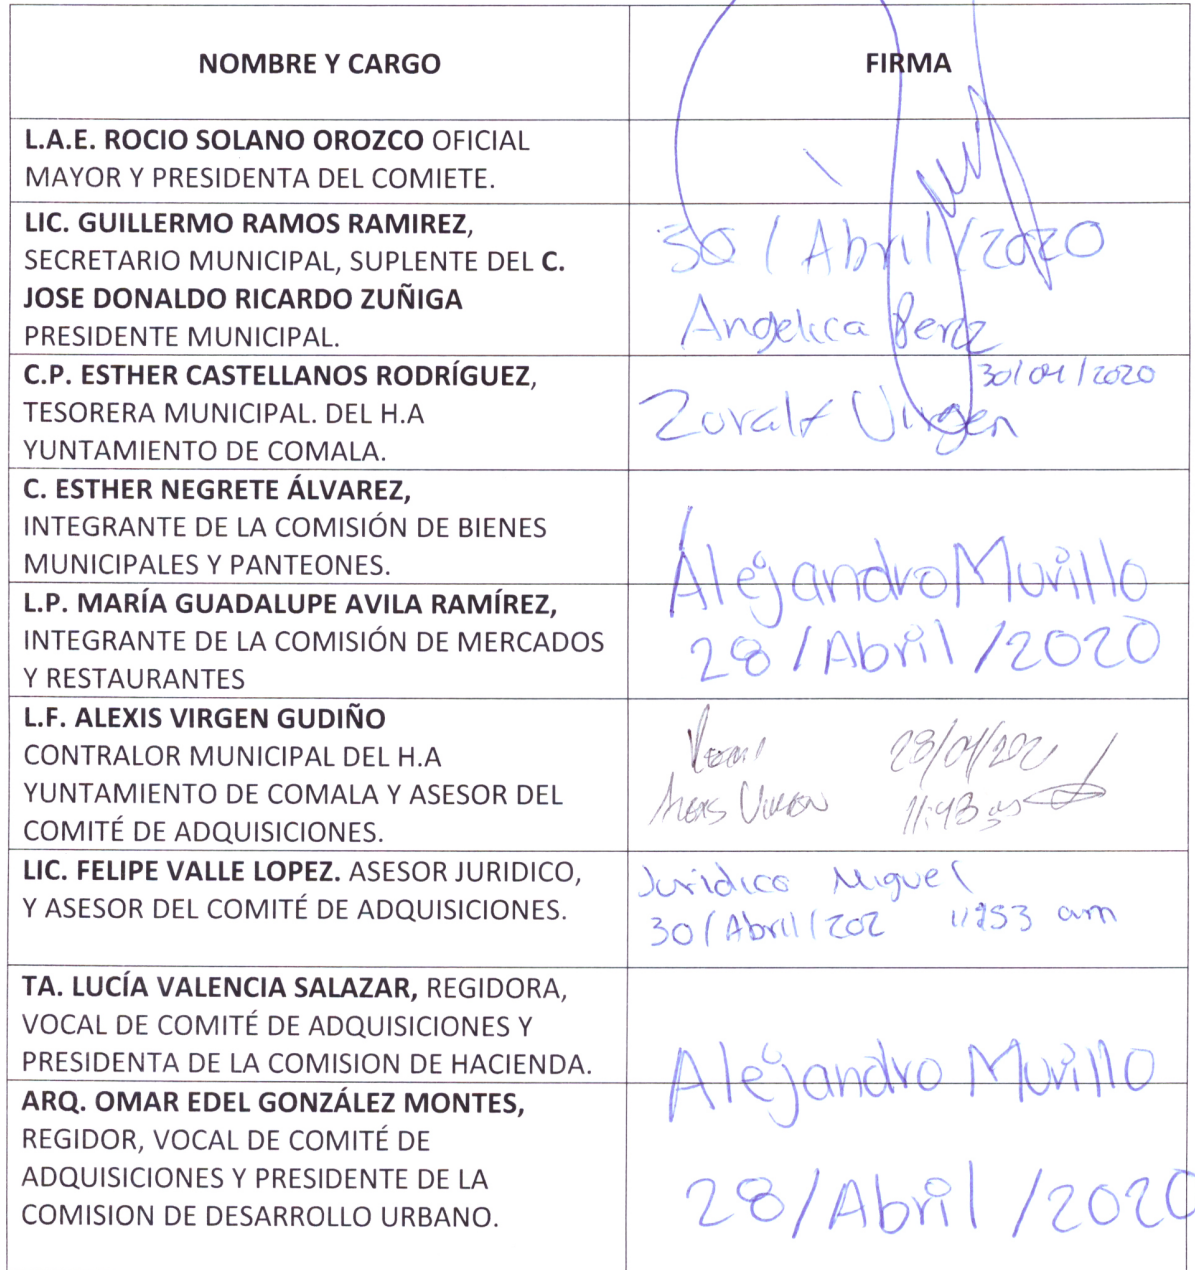 NOMBRE Y CARGO
FIRMA
L.A.E. ROCIO SOLANO OROZCO OFICIAL
MAYOR Y PRESIDENTA DEL COMIETE.
LIC. GUILLERMO RAMOS RAMIREZ,
SECRETARIO MUNICIPAL, SUPLENTE DEL C.
JOSE DONALDO RICARDO ZUÑIGA
PRESIDENTE MUNICIPAL.
30/Abril/2020
Angelica Perez
C.P. ESTHER CASTELLANOS RODRÍGUEZ,
TESORERA MUNICIPAL. DEL H.A
YUNTAMIENTO DE COMALA.
30/04/2020
Virgen
C. ESTHER NEGRETE ÁLVAREZ,
INTEGRANTE DE LA COMISIÓN DE BIENES
MUNICIPALES Y PANTEONES.
L.P. MARÍA GUADALUPE AVILA RAMÍREZ,
INTEGRANTE DE LA COMISIÓN DE MERCADOS
Y RESTAURANTES
Alejandro Murillo
28/Abril/2020
L.F. ALEXIS VIRGEN GUDIÑO
CONTRALOR MUNICIPAL DEL H.A
YUNTAMIENTO DE COMALA Y ASESOR DEL
COMITÉ DE ADQUISICIONES.
28/04/202
Alexis Virgen 11:43
LIC. FELIPE VALLE LOPEZ. ASESOR JURIDICO,
Y ASESOR DEL COMITÉ DE ADQUISICIONES.
Juridico Miguel
30/Abril/202 11:53 am
TA. LUCÍA VALENCIA SALAZAR, REGIDORA,
VOCAL DE COMITÉ DE ADQUISICIONES Y
PRESIDENTA DE LA COMISION DE HACIENDA.
ARQ. OMAR EDEL GONZÁLEZ MONTES,
REGIDOR, VOCAL DE COMITÉ DE
ADQUISICIONES Y PRESIDENTE DE LA
COMISION DE DESARROLLO URBANO.
Alejandro Murillo
28/Abril/2020